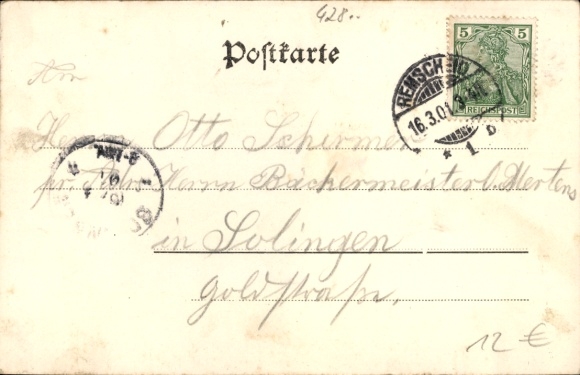 428..
Postkarte
5 5
REICHSPOST
REMSCHEID
16.3.01
* 1 b
An
Herrn Otto Schirmer
pr. Adrs Herrn Bäckermeister C. Mertens
in Solingen
Goldstraße,
12 €